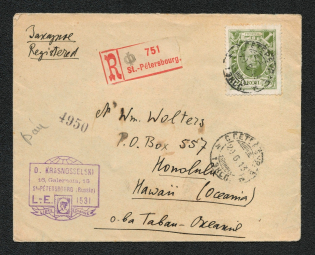 Заказное
Registered
R
751
St.-Pétersbourg.
4950
Wm. Wolters
P.O. Box 557
Honolulu
Hawaii (Oceania)
о-ва Гаваи-Океания
O. KRASNOSSELSKI
St-PÉTERSBOURG (Russie)
L.-E.
1531